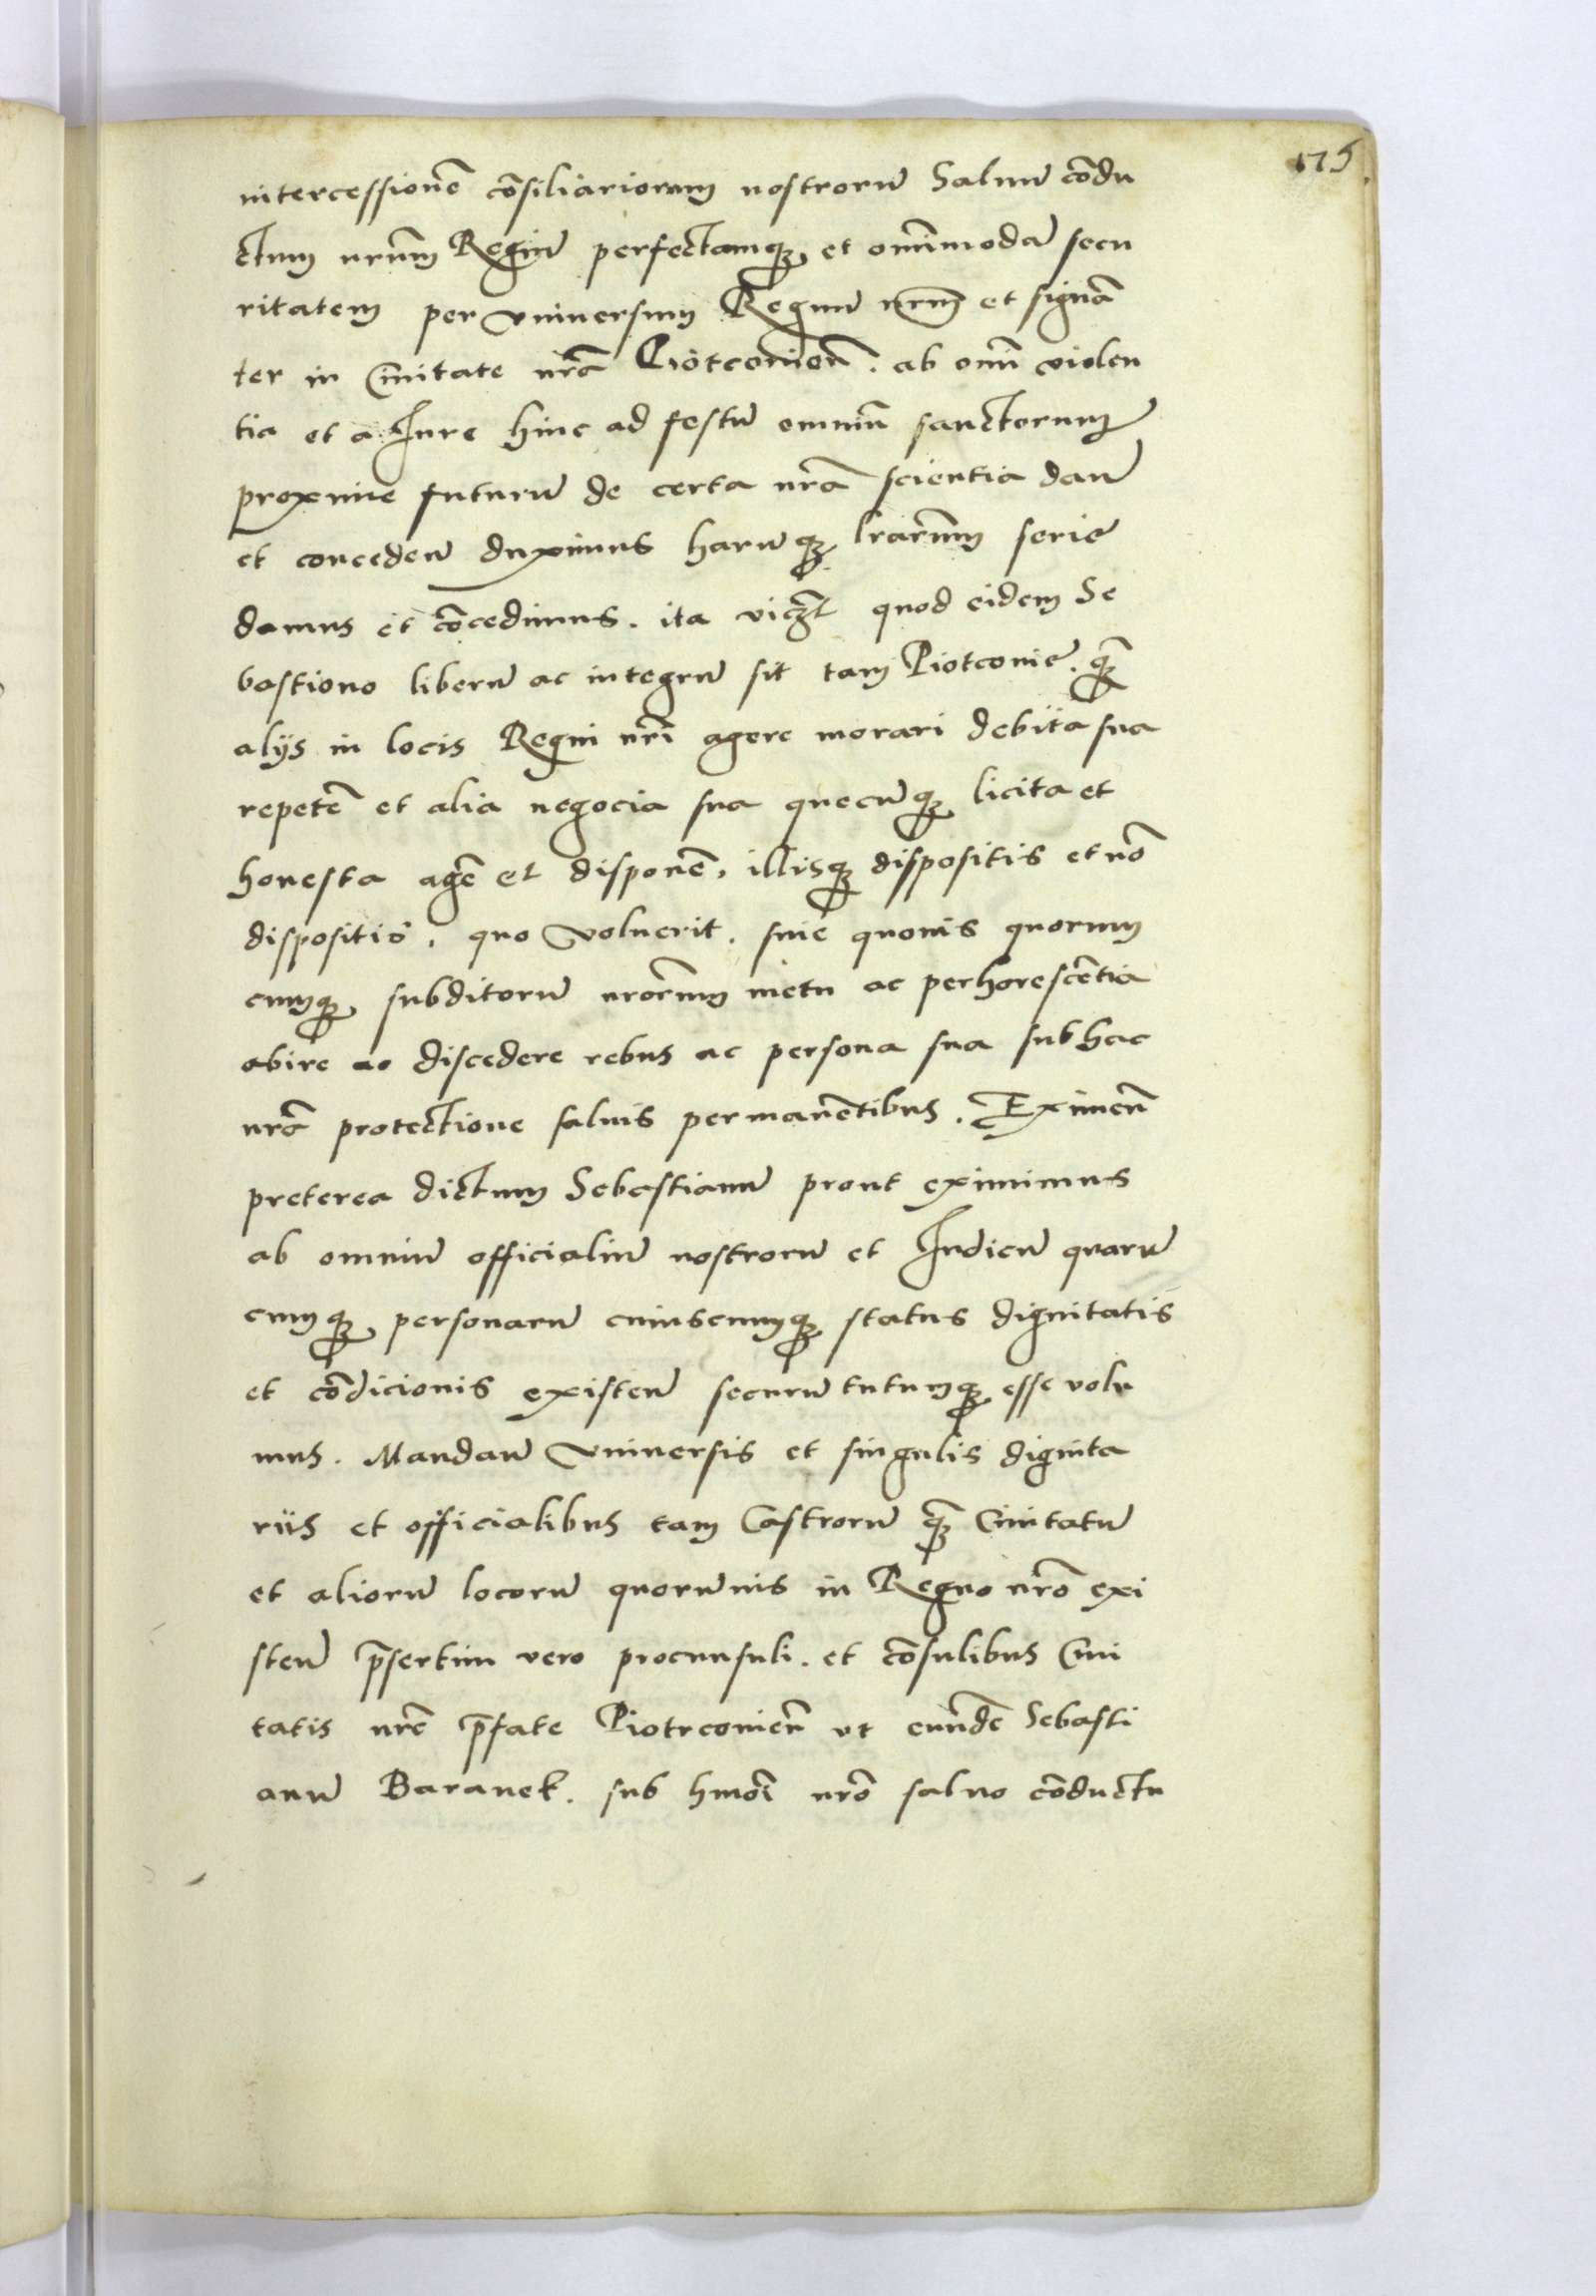 175.
intercessionē cōsiliariorum nostrorū Saluū cōdu
ctum nr̄um Regiū perfectamq3 et om̄imodā secu
ritatem per vniuersum Regnū nr̄m et signā
ter in Ciuitate nr̄a Piotrconien̄. ab om̄i violen
tia et a Iure hinc ad festū omniū sanctorum
proxime futurū de certa nr̄a scientia dan̄
et conceden̄ duximus harūq3 lr̄arum serie
damus et cōcedimus. ita vicz̄t quod eidem Se
bastiano liberū ac integrū sit tam Piotrconie. q3̄
alijs in locis Regni nr̄i agere morari debita sua
repetē et alia negocia sua quecūq3 licita et
honesta agē et disponē, illisq3 dispositis et nō
dispositis, quo voluerit. sine quouis quorum
cumq3 subditorū nr̄orum metu ac perhorescētia
abire ac discedere rebus ac persona sua sub hac
nr̄a protectione saluis permanētibus. Eximen̄
preterea dictum Sebastianū prout eximimus
ab omniū officialiū nostrorū et Iudicū quarū
cumq3 personarū cuiuscumq3 status dignitatis
et cōdicionis existen̄ securū tutumq3 esse volu
mus. Mandan̄ vniuersis et singulis dignita
riis et officialibus tam Castrorū q3̄ Ciuitatū
et aliorū locorū quorūuis in Regno nr̄o exi
sten̄ p̄sertim vero proconsuli. et cōsulibus Ciui
tatis nr̄e p̄fate Piotrconien̄ vt eundē Sebasti
anū Baranek. sub hmōi nr̄o saluo cōductu